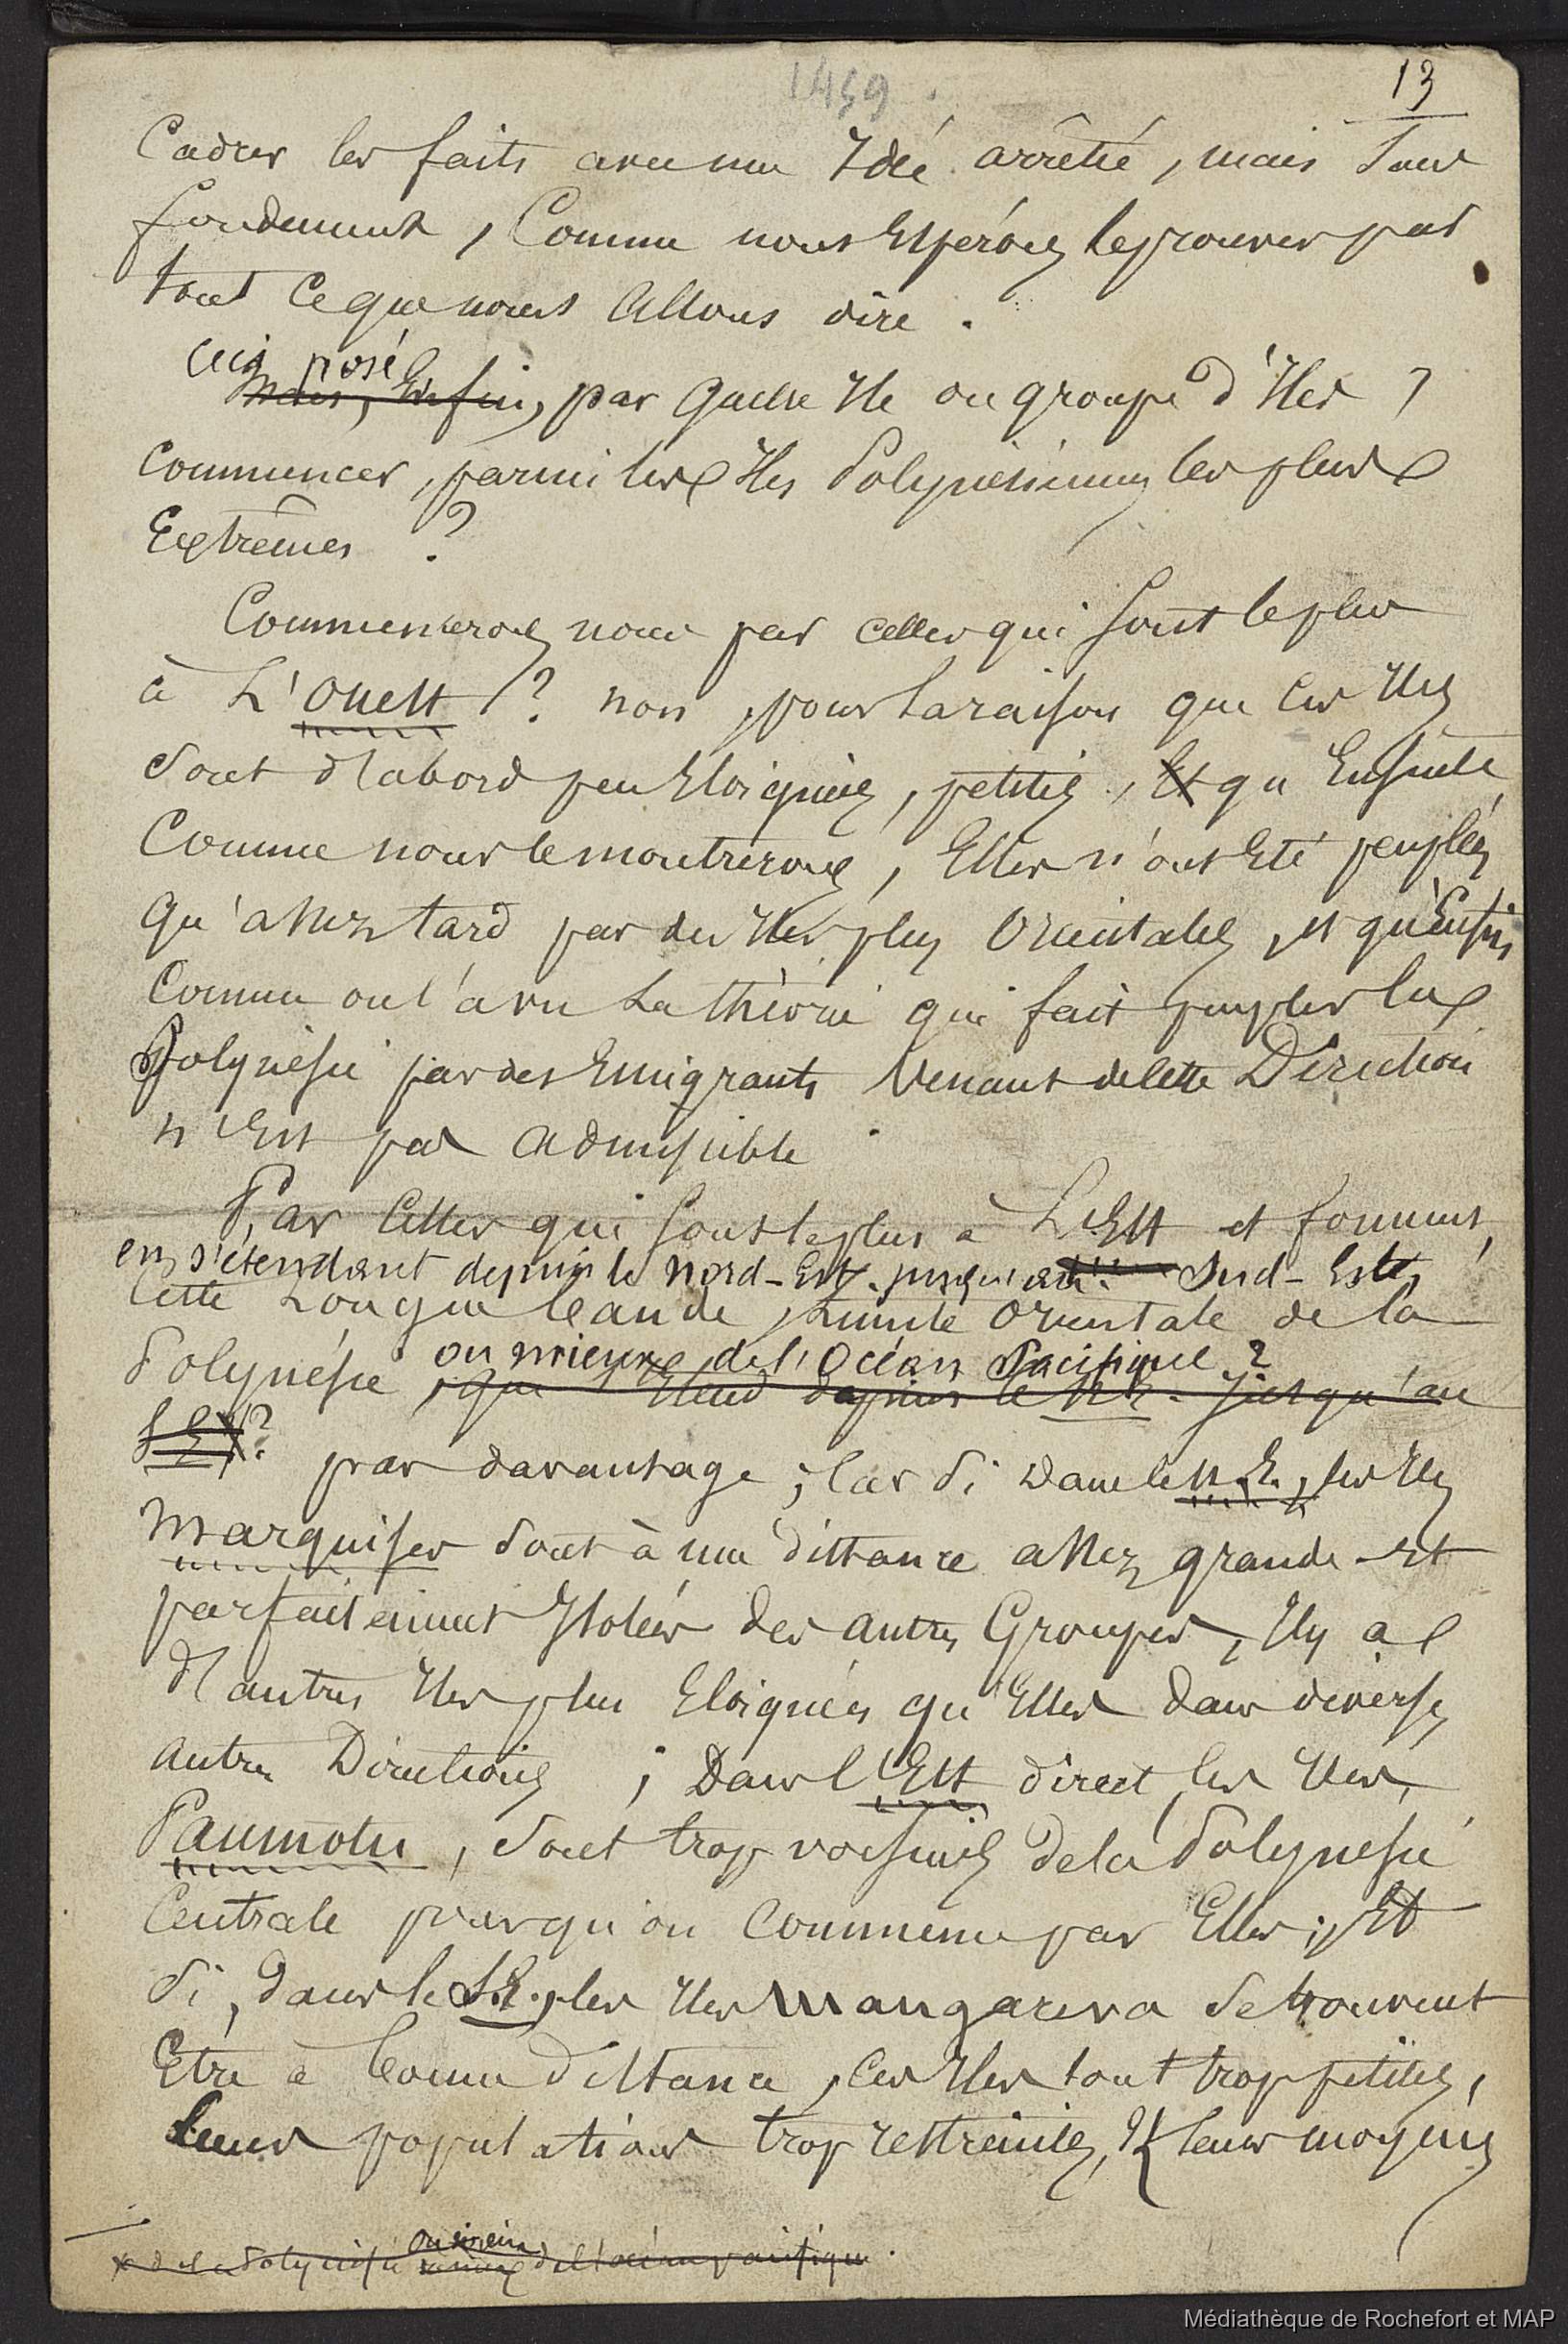 1459.
13
Cadrer les faits avec une Idée arrêtée, mais sans
fondement, Comme nous Espérons le prouver par
tout ce que nous allons dire.
Ceci posé
Mais, Enfin, par quelle Ile ou groupe d'Iles
commencer, parmi les Iles Polynésiennes les plus
Extrêmes ?
Commencerons nous par celles qui sont le plus
à L'Ouest ? non, pour la raison que ces Iles
sont d'abord peu Eloignées, petites, Et qu'Ensuite,
Comme nous le montrerons, Elles n'ont Eté peuplées
qu'assez tard par des Iles plus Orientales, et qu'Enfin,
Comme on l'a vu La théorie qui fait peupler la
Polynésie par des Emigrants Venant de cette Direction
n'Est pas admissible.
Par Celles qui sont le plus à L'Est et forment,
en s'étendant depuis le Nord-Est jusqu'au Sud-Est,
Cette Longue bande, Limite Orientale de la
ou mieux de l'Océan Pacifique ?
Polynésie, qui s'étend depuis le N.E. jusqu'au
S.E. ? pas davantage ; Car si dans le N.E., les Iles
Marquises sont à une distance assez grande et
parfaitement Isolées des autres Groupes, Il y a
d'autres Iles plus Eloignées qu'Elles dans diverses
autres Directions ; Dans l'Est direct, les Iles,
Paumotu, sont trop voisines de la Polynésie
Centrale pour qu'on Commence par Elles ; Et
si, dans le S.E., les Iles Mangareva se trouvent
Etre à bonne distance, ces Iles sont trop petites,
leurs populations trop restreintes, & leurs moyens
x de la Polynésie ou mieux de l'océan pacifique.
Médiathèque de Rochefort et MAP